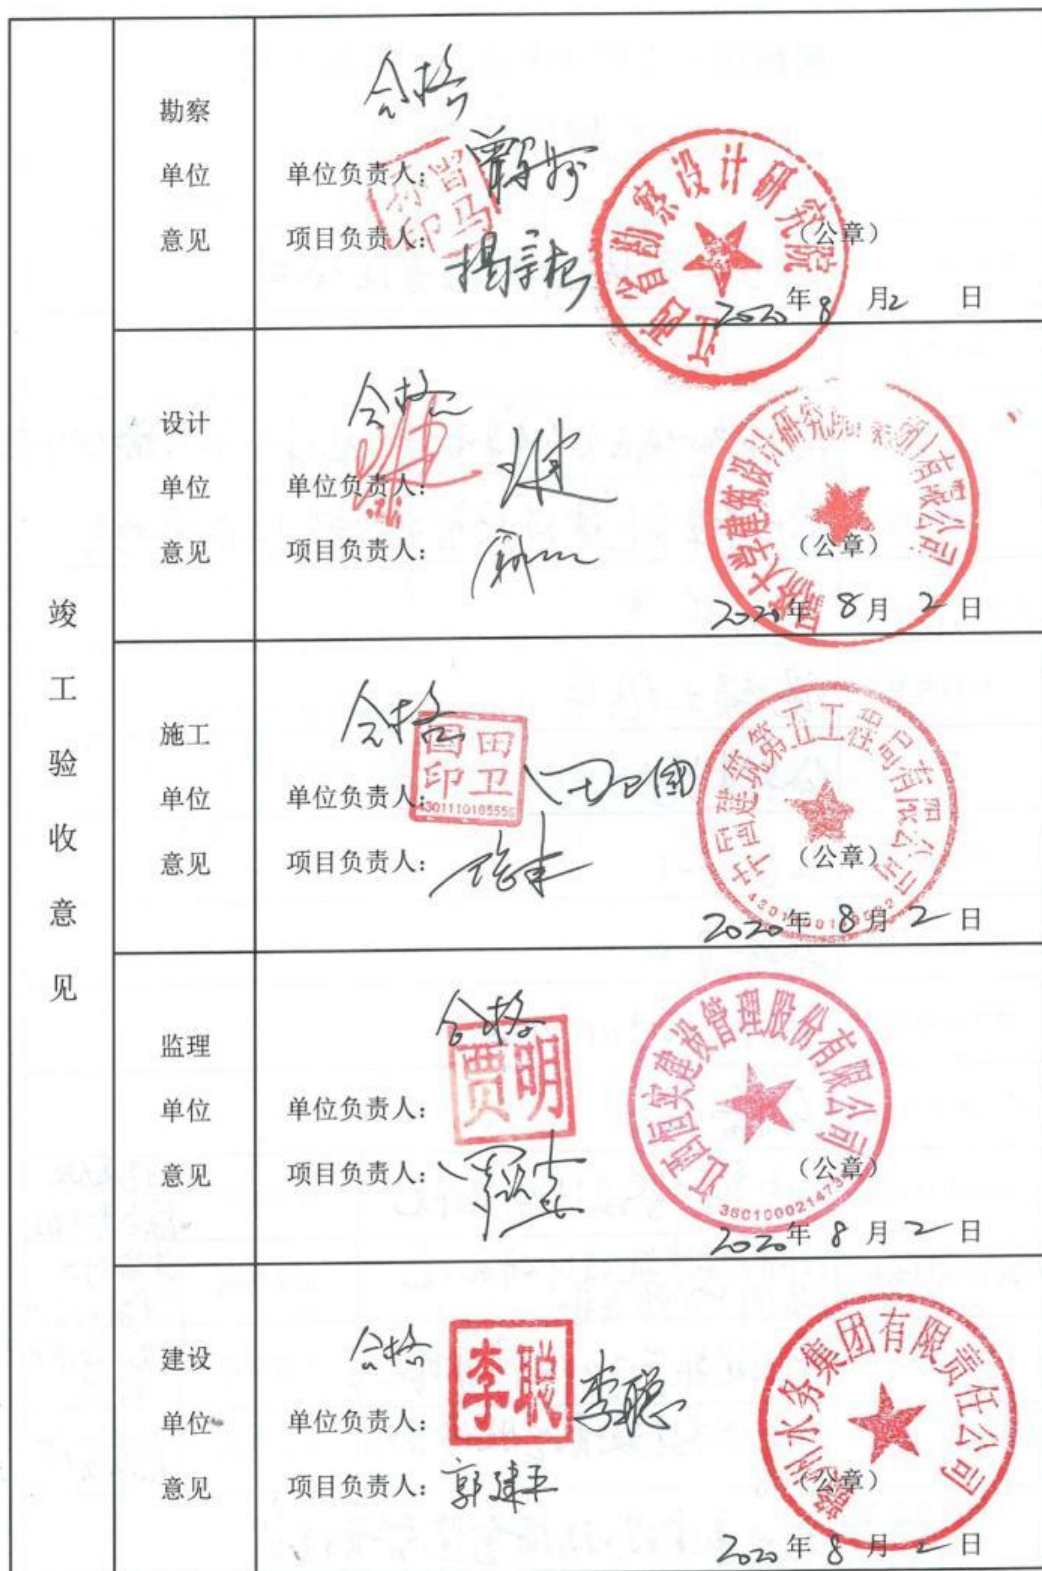 竣工验收意见
勘察单位意见
合格
单位负责人：
项目负责人：
江西省勘察设计研究院
（公章）
2020年8月2日
设计单位意见
合格
单位负责人：
项目负责人：
大学建筑设计研究院（集团）有限公司
（公章）
2020年8月2日
施工单位意见
合格
田卫国印
单位负责人：田卫国
项目负责人：
中国建筑第五工程局有限公司
（公章）
2020年8月2日
监理单位意见
合格
贾明
单位负责人：
项目负责人：
江西恒实建设管理股份有限公司
（公章）
2020年8月2日
建设单位意见
合格
李聪
单位负责人：李聪
项目负责人：郭建平
赣州水务集团有限责任公司
（公章）
2020年8月2日